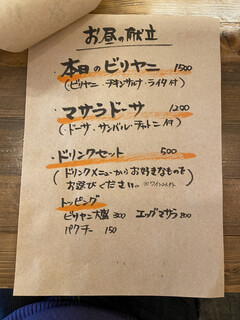 お昼の献立
・本日のビリヤニ 1500
(ビリヤニ・チキンサルナ・ライタ付)
・マサラドーサ 1200
(・ドーサ・サンバル・チャトニ付)
・ドリンクセット 500
(ドリンクメニューからお好きなものを
お選びください。
トッピング
ビリヤニ大盛 300 エッグマサラ 200
パクチー 150